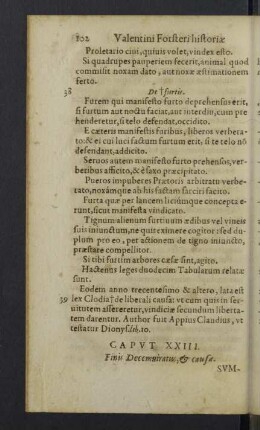 102 Valentini Forsteri historiæ
Proletario ciui, quiuis volet, vindex esto.
Si quadrupes pauperiem fecerit, animal quod
commisit noxam dato, aut noxæ æstimationem
ferto.
38 De furtis.
Furem qui manifesto furto deprehensus erit,
si furtum aut nocta faciat, aut interdiu, cum pre
henderetur, si telo defendat, occidito.
E cæteris manifestis furibus, liberos verbera-
to: & ei cui luci factum furtum erit, si te telo nõ
defendant, addicito.
Seruos autem manifesto furto prehensis, ver-
beribus afficito, & è saxo præcipitato.
Pueros impuberes Prætoris arbitratu verbe-
rato, noxámque ab his factam sarciri facito.
Furta quæ per lancem liciúmque concepta e-
runt, sicut manifesta vindicato.
Tignum alienum furtiuum ædibus vel vineis
suis iniunctum, ne quis eximere cogitor: sed du-
plum pro eo, per actionem de tigno iniuncto,
præstare compellitor.
Si tibi furtim arbores cæsæ sint, agito.
Hactenus leges duodecim Tabularum relatæ
sunt.
Eodem anno trecentesimo & altero, lata est
39 lex Clodia de liberali causa: vt cum quis in ser-
uitutem assereretur, vindiciæ secundum liberta-
tem darentur. Author fuit Appius Claudius, vt
testatur Dionys. lib. 10.
CAPVT XXIII.
Finis Decemuiratus, & causæ.
SVM-